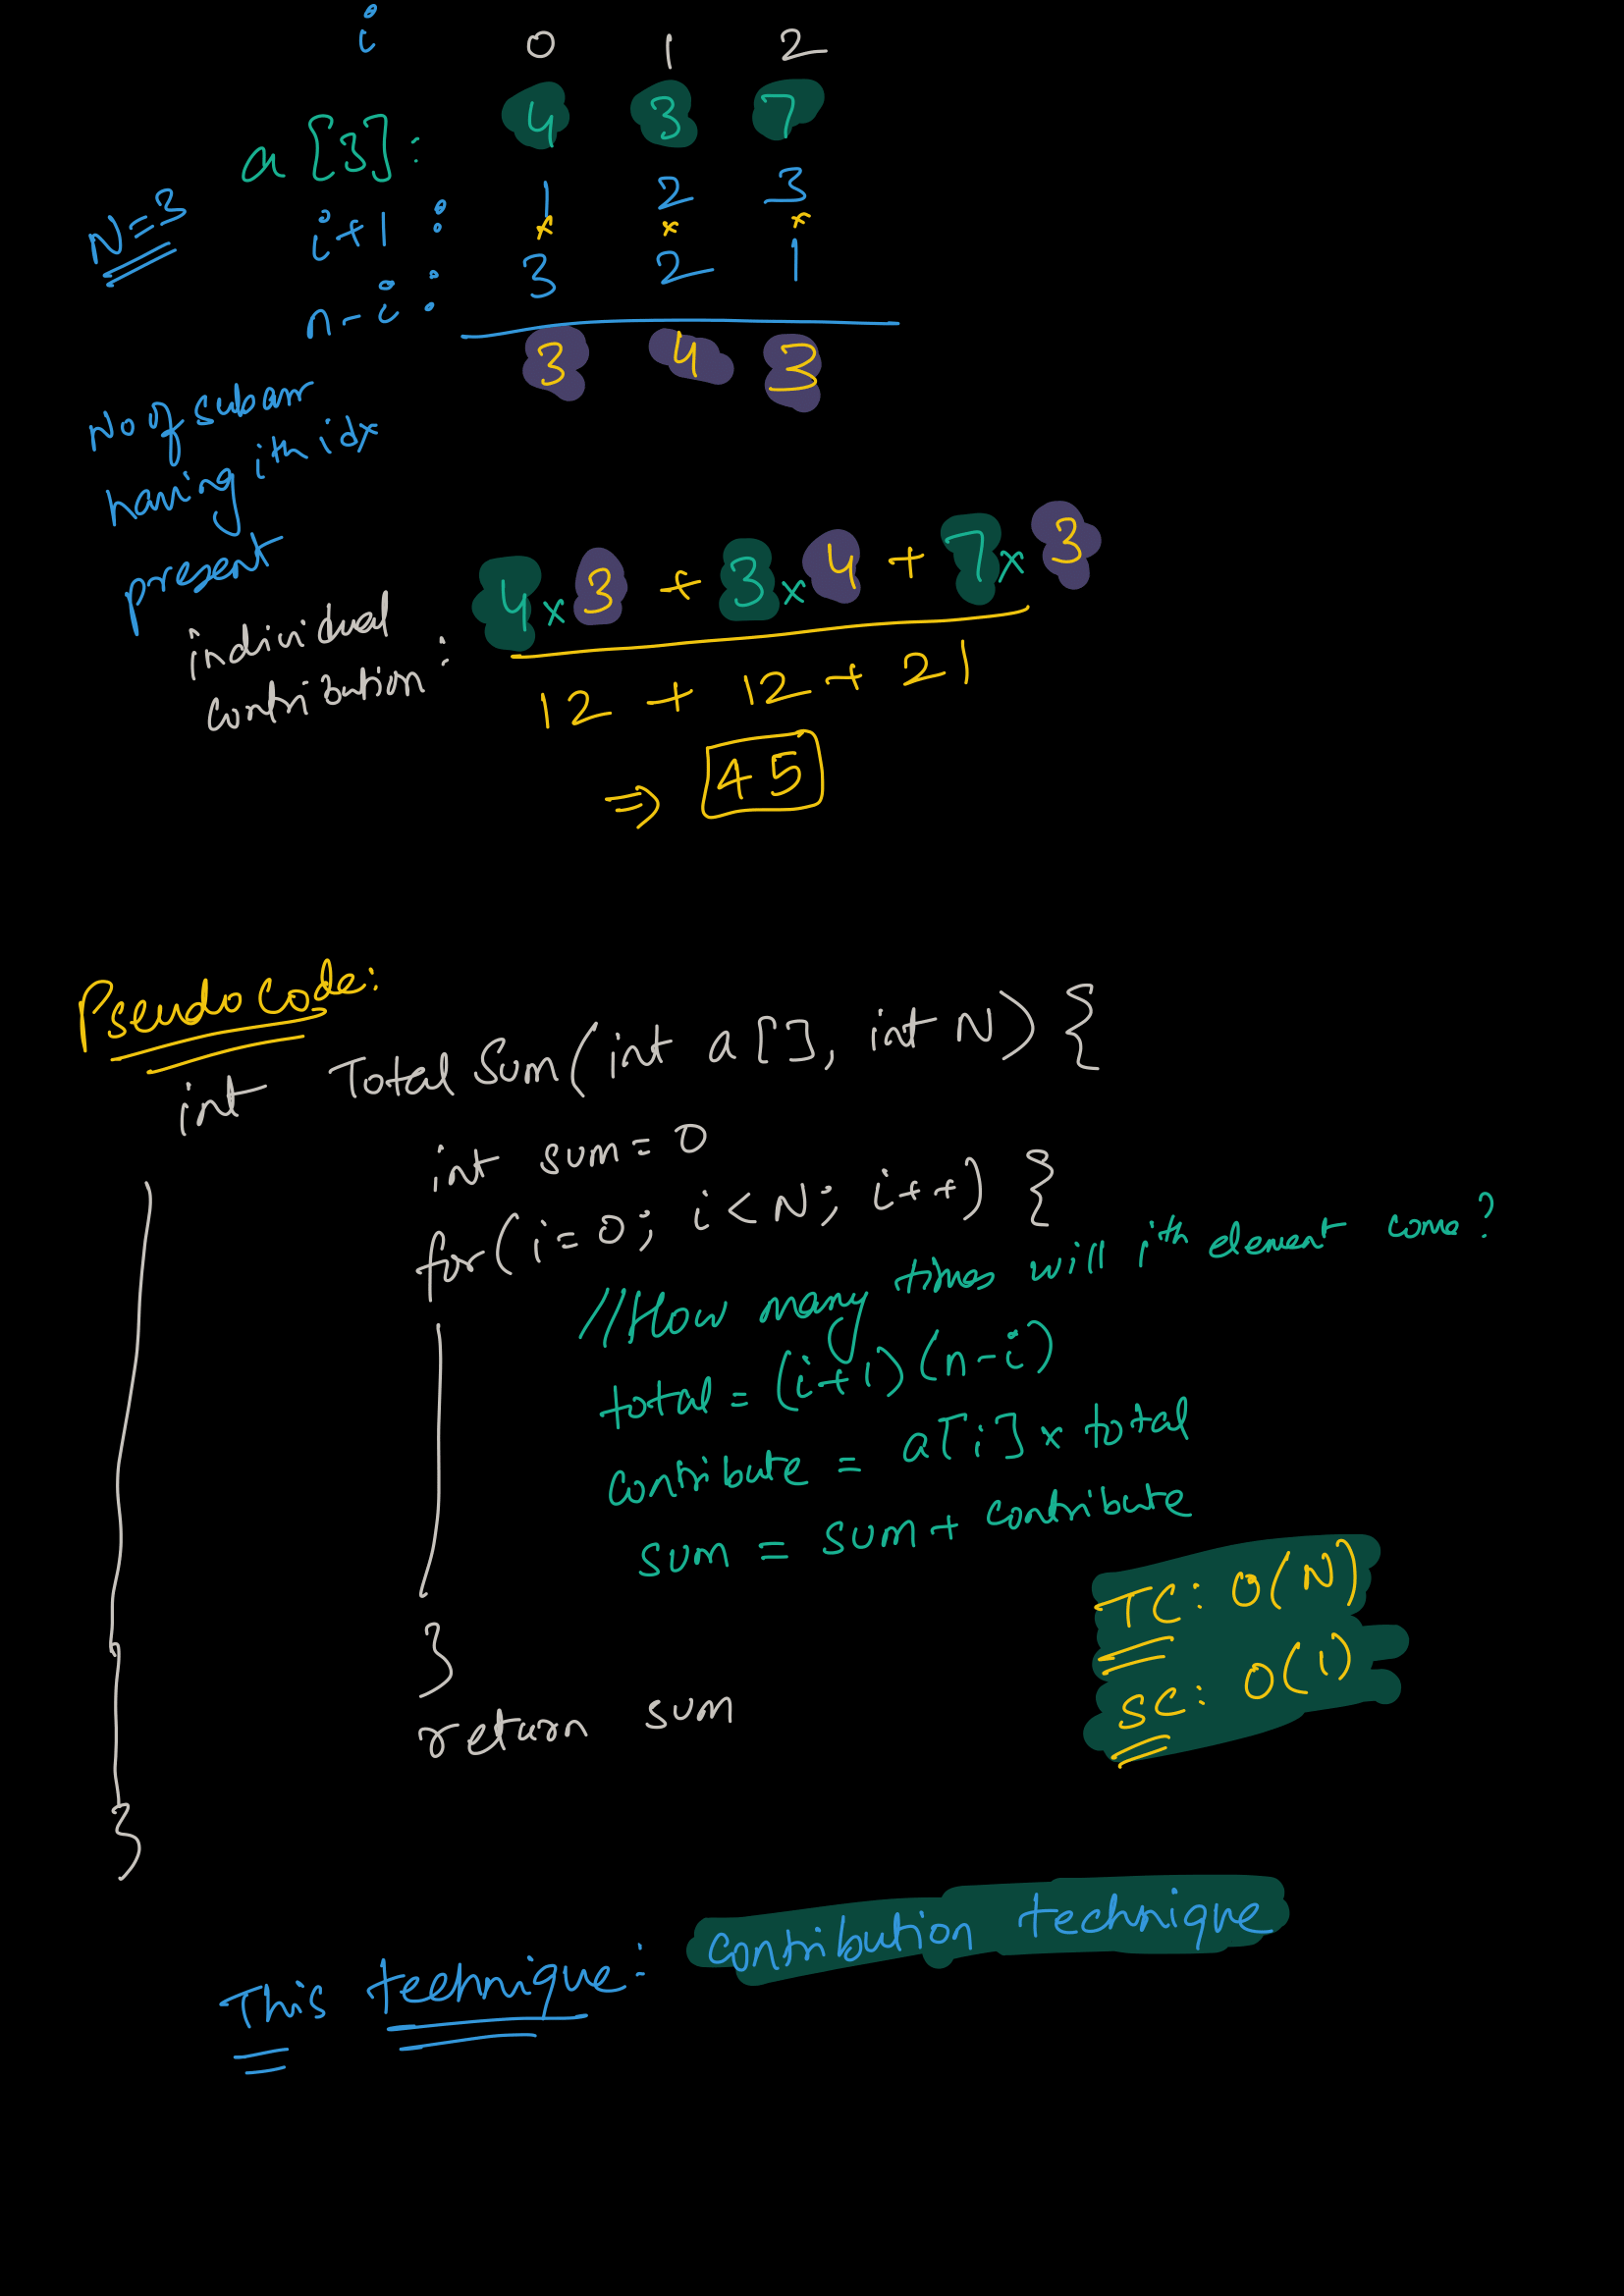 i 0 1 2
a[3]: 4 3 7
N=3
i+1 : 1 2 3
* * *
n-i : 3 2 1
3 4 3
No of subarr
having ith idx
present
individual
contribution: 4 x 3 + 3 x 4 + 7 x 3
12 + 12 + 21
⇒ 45
Pseudo code:
int Total Sum(int a[], int N) {
int sum = 0
for(i=0; i<N; i++) {
//How many times will ith element come?
total = (i+1)(n-i)
contribute = a[i] x total
sum = sum + contribute
}
return sum
}
TC: O(N)
SC: O(1)
This technique: contribution technique